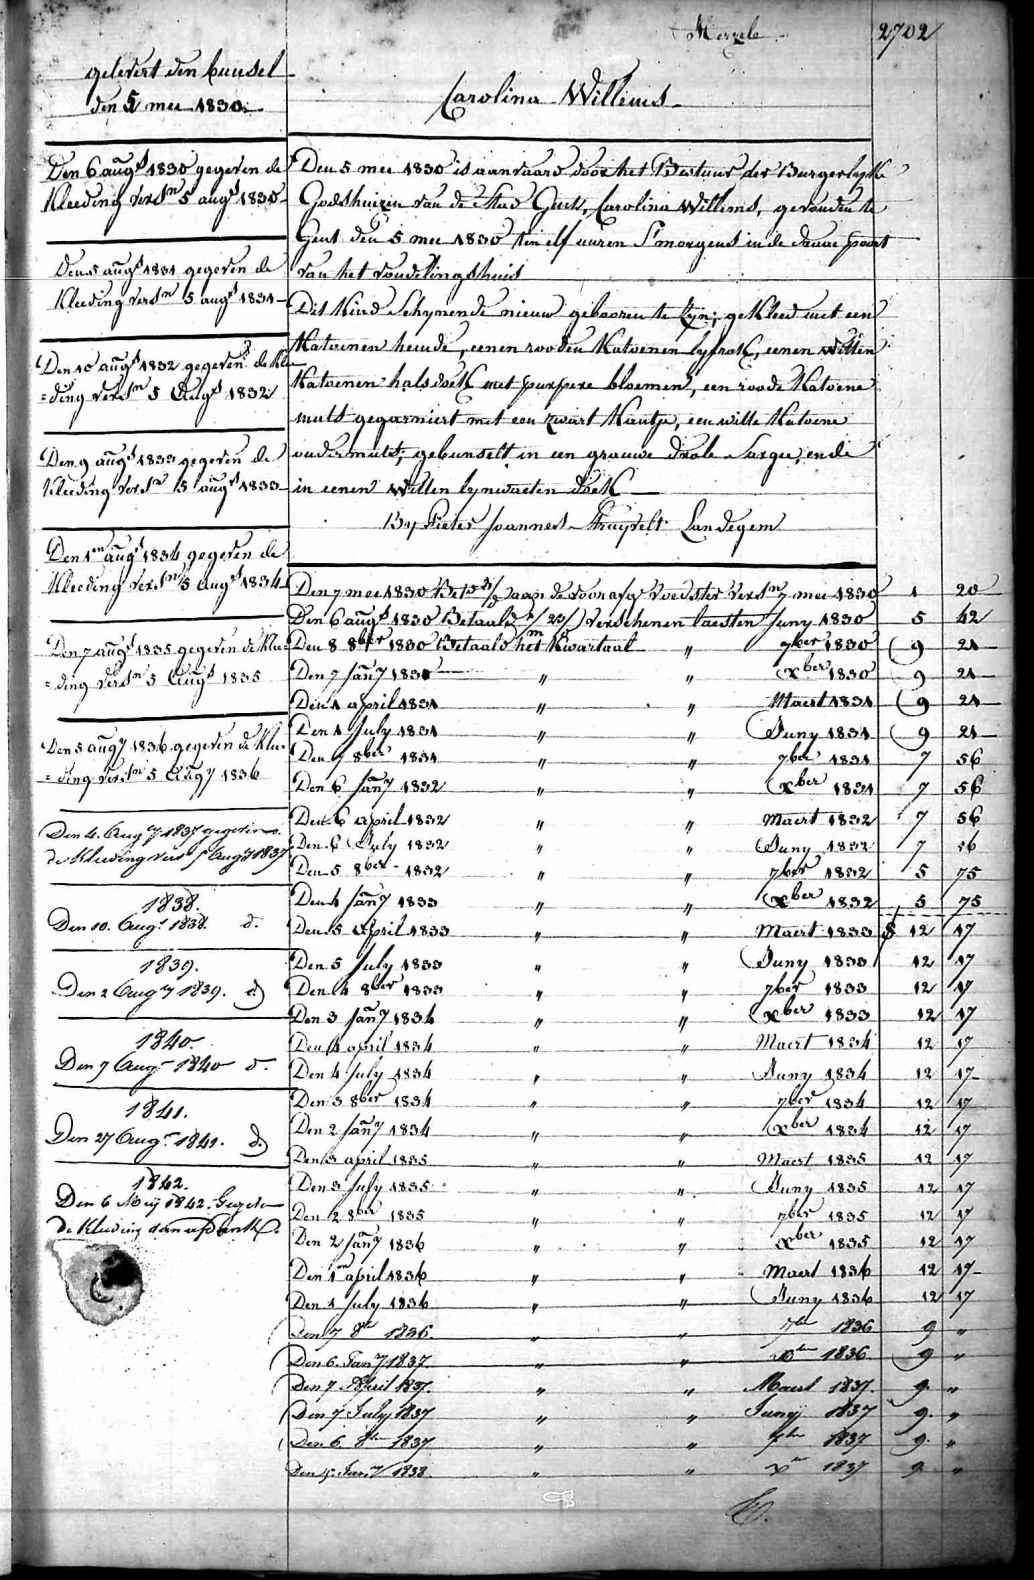 2702
gelevert den bunsel
den 5 mei 1830
Carolina Willems
Den 6 augs 1830 gegeven de
Kleeding versn 5 augs 1830
Den 5 augs 1831 gegeven de
Kleeding versn 5 augs 1831
Den 10 augs 1832 gegevens de Klee
=ding versn 5 Augs 1832
Den 9 augs 1833 gegeven de
Kleeding versn 5 augs 1833
Den 1en augs 1834 gegeven de
Kleeding versn 5 augs 1834
Den 7 augs 1835 gegeven de Klee
=ding versn 5 Augs 1835
Den 5 augy 1836 gegeven de Klee
=ding versn 5 Augy 1836
Den 4. Augy 1837 gegeven
de Kleeding vers 5 Augy 1837
1838.
Den 10. Augs 1838. d.
1839.
Den 2 Augy 1839. d
1840.
Den 7 Aug 1840 d.
1841.
Den 27 Aug 1841. d
1842.
Den 6 Meij 1842. Gegeven
de Kleeding
Den 5 mei 1830 is aanvaard door het Bestuur der Burgerlyke
Godshuizen van de stad Gent, Carolina Willems, gevonden te
Gent den 5 mei 1830 ten elf uuren S'morgens in de
van het vondelingshuis
Dit Kind schynende nieuw gebooren te zyn; gekleed met een
Katoenen hemde, eenen rooden Katoenen lyfrok, eenen Witten
Katoenen halsdoek met purpere bloemen, een roode Katoene
muts gegarniert met een zwart Kantje, een witte Katoene
ondermuts; gebunselt in een grauwe drole Sargie, en de
in eenen Witten lynwaeten doek
By Pieter Joannes Landegem
Den 7 mei 1830 Bet aan de voedster versn 7 mei 1830 1 20
Den 6 augs 1830 Betaald verschenen laesten Juny 1830 5 42
Den 8 8ber 1830 Betaald het Kwartaal " 7ber 1830 9 21
Den 7 Jany 1831 " " Xber 1830 9 21
Den 1 april 1831 " " Maert 1831 9 21
Den 1 July 1831 " " Juny 1831 9 21
Den 7 8ber 1831 " " 7ber 1831 7 56
Den 6 Jany 1832 " " Xber 1831 7 56
Den 6 april 1832 " " Maert 1832 7 56
Den 6 July 1832 " " Juny 1832 7 56
Den 5 8ber 1832 " " 7ber 1832 5 75
Den 4 Jany 1833 " " Xber 1832 5 75
Den 5 April 1833 " " Maert 1833 12 17
Den 5 July 1833 " " Juny 1833 12 17
Den 4 8ber 1833 " " 7ber 1833 12 17
Den 3 Jany 1834 " " Xber 1833 12 17
Den 4 april 1834 " " Maert 1834 12 17
Den 4 July 1834 " " Juny 1834 12 17
Den 3 8ber 1834 " " 7ber 1834 12 17
Den 2 Jany 1834 " " Xber 1834 12 17
Den 3 april 1835 " " Maert 1835 12 17
Den 3 July 1835 " " Juny 1835 12 17
Den 2 8ber 1835 " " 7ber 1835 12 17
Den 2 Jany 1836 " " Xber 1835 12 17
Den 1en april 1836 " " Maert 1836 12 17
Den 1 July 1836 " " Juny 1836 12 17
Den 7 8br 1836. " " 7ber 1836 9 "
Den 6. Jany 1837. " " Xber 1836 9 "
Den 7 April 1837. " " Maert 1837. 9 "
Den 7 July 1837 " " Junij 1837 9. "
Den 6 8br 1837 " " 7ber 1837 9. "
Den 5. Jany 1838. " " Xr 1837 9 "